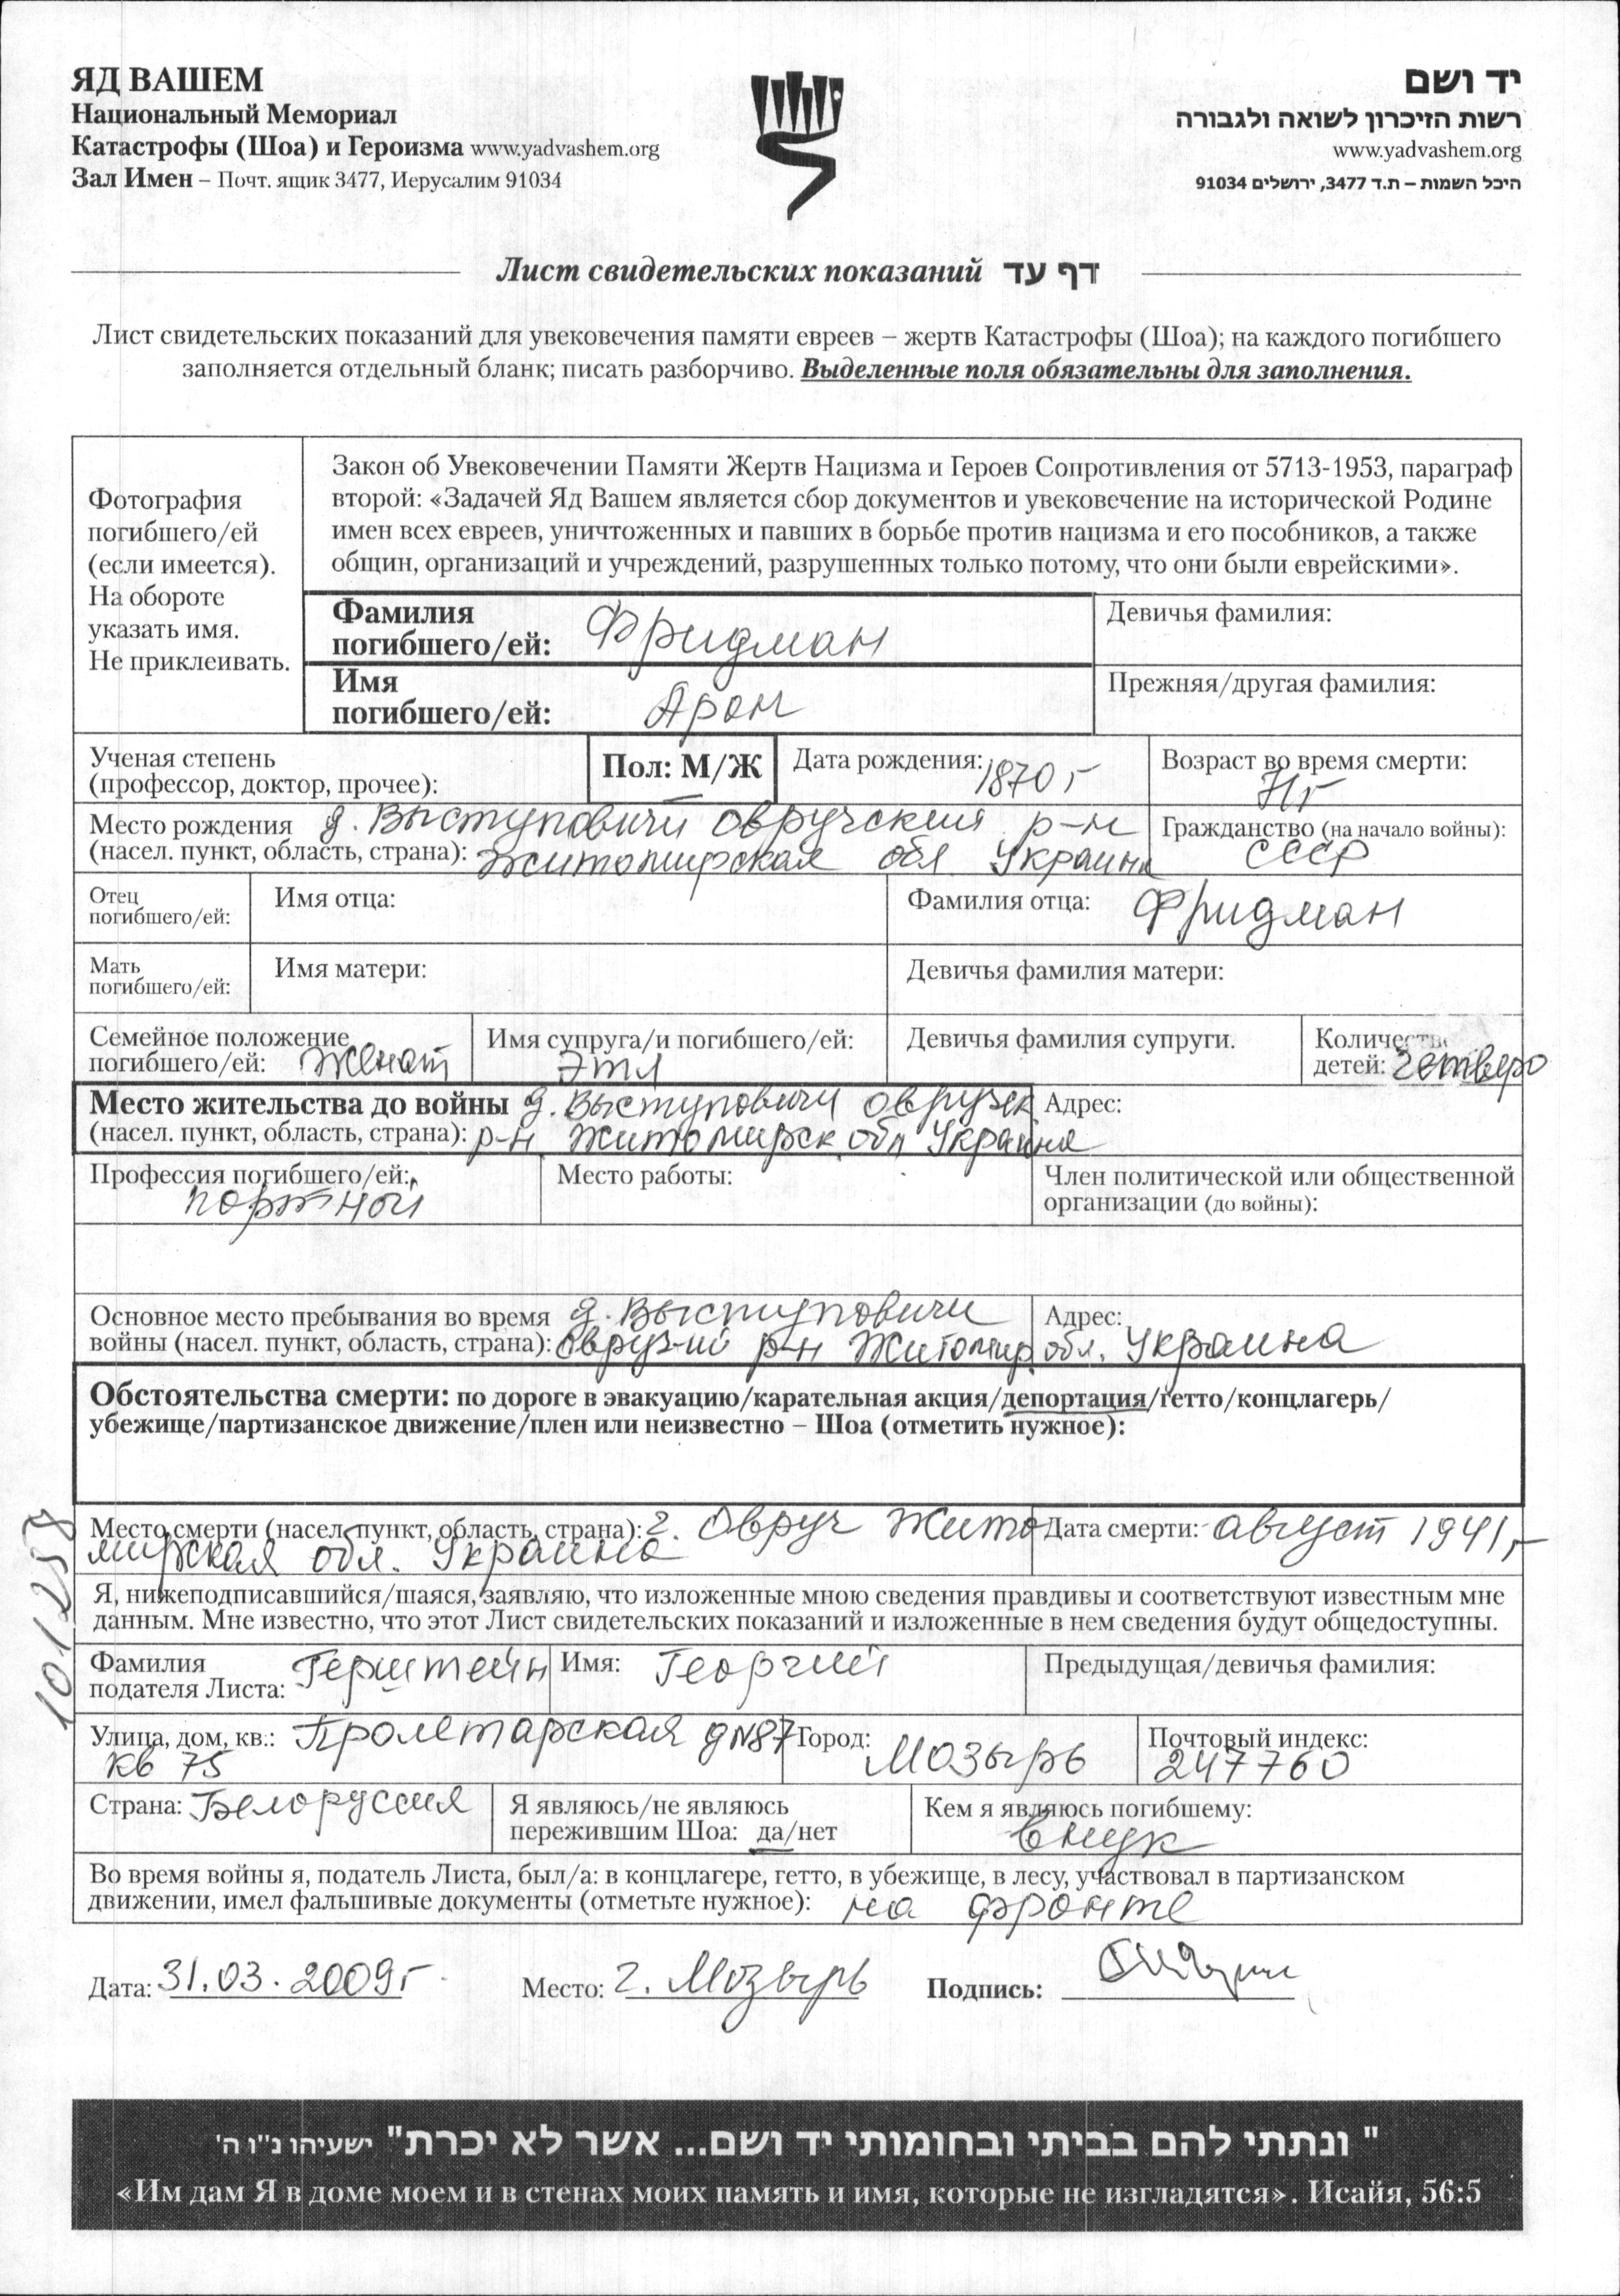 ЯД ВАШЕМ
Национальный Мемориал
Катастрофы (Шоа) и Героизма www.yadvashem.org
Зал Имен – Почт. ящик 3477, Иерусалим 91034
יד ושם
רשות הזיכרון לשואה ולגבורה
www.yadvashem.org
היכל השמות – ת.ד 3477, ירושלים 91034
Лист свидетельских показаний דף עד
Лист свидетельских показаний для увековечения памяти евреев – жертв Катастрофы (Шоа); на каждого погибшего
заполняется отдельный бланк; писать разборчиво. Выделенные поля обязательны для заполнения.
Фотография
погибшего/ей
(если имеется).
На обороте
указать имя.
Не приклеивать.
Закон об Увековечении Памяти Жертв Нацизма и Героев Сопротивления от 5713-1953, параграф
второй: «Задачей Яд Вашем является сбор документов и увековечение на исторической Родине
имен всех евреев, уничтоженных и павших в борьбе против нацизма и его пособников, а также
общин, организаций и учреждений, разрушенных только потому, что они были еврейскими».
Фамилия
погибшего/ей: Фридман
Девичья фамилия:
Имя
погибшего/ей: Арон
Прежняя/другая фамилия:
Ученая степень
(профессор, доктор, прочее):
Пол: М/Ж
Дата рождения: 1870 г
Возраст во время смерти:
71 г
Место рождения д. Выступовичи Овручский р-н
(насел. пункт, область, страна): Житомирская обл Украина
Гражданство (на начало войны):
СССР
Отец
погибшего/ей:
Имя отца:
Фамилия отца: Фридман
Мать
погибшего/ей:
Имя матери:
Девичья фамилия матери:
Семейное положение
погибшего/ей: Женат
Имя супруга/и погибшего/ей:
Этл
Девичья фамилия супруги.
Количество
детей: четверо
Место жительства до войны д. Выступовичи Овручск
(насел. пункт, область, страна): р-н Житомирск обл Украина
Адрес:
Профессия погибшего/ей:
портной
Место работы:
Член политической или общественной
организации (до войны):
Основное место пребывания во время д. Выступовичи
войны (насел. пункт, область, страна): Овруч-ий р-н Житомир. обл. Украина
Адрес:
Обстоятельства смерти: по дороге в эвакуацию/карательная акция/депортация/гетто/концлагерь/
убежище/партизанское движение/плен или неизвестно – Шоа (отметить нужное):
Место смерти (насел. пункт, область, страна): г. Овруч Жито
мирская обл. Украина
Дата смерти: август 1941 г
101/258
Я, нижеподписавшийся/шаяся, заявляю, что изложенные мною сведения правдивы и соответствуют известным мне
данным. Мне известно, что этот Лист свидетельских показаний и изложенные в нем сведения будут общедоступны.
Фамилия
подателя Листа: Герштейн
Имя: Георгий
Предыдущая/девичья фамилия:
Улица, дом, кв.: Пролетарская д №87
кв 75
Город: Мозырь
Почтовый индекс:
247760
Страна: Белоруссия
Я являюсь/не являюсь
пережившим Шоа: да/нет
Кем я являюсь погибшему:
внук
Во время войны я, податель Листа, был/а: в концлагере, гетто, в убежище, в лесу, участвовал в партизанском
движении, имел фальшивые документы (отметьте нужное): на фронте
Дата: 31.03.2009 г
Место: г. Мозырь
Подпись:
" ונתתי להם בביתי ובחומותי יד ושם... אשר לא יכרת" ישעיהו נ''ו ה'
«Им дам Я в доме моем и в стенах моих память и имя, которые не изгладятся». Исайя, 56:5